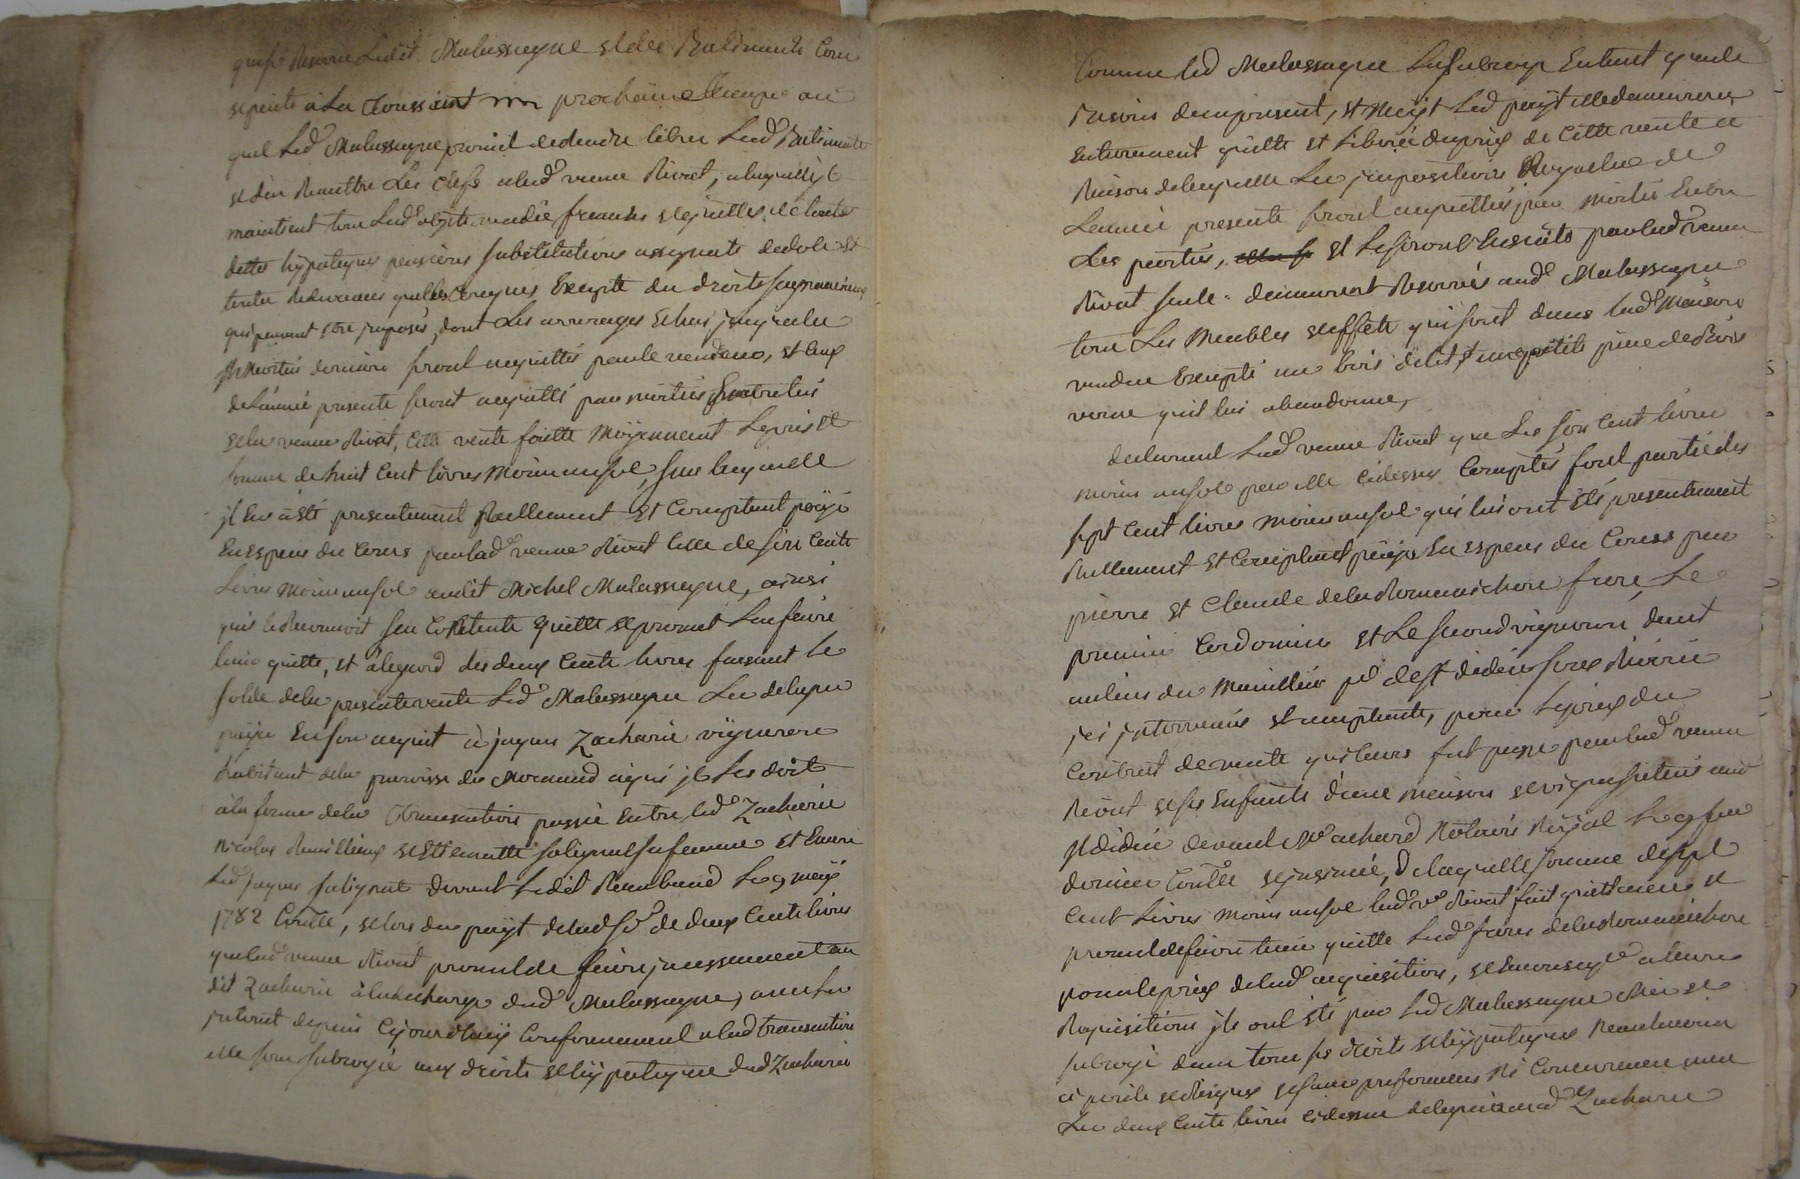 que se Reserve Ledit Malassagne et des Batiments Comme
a la toussaint prochaine temps au
quel Led Malassagne promet de rendre libres Lesd Batiments
et den Remettre Les Clefs a lad veuve Rivat, a laquelle il
maintient tous Lesd objets vendus francs et quittes de toutes
dettes hypoteques pensions substitutions assignats de dote et
toutes Redevances quelconques Excepté des droits seigneuriaux
qui peuvent etre imposés, dont Les arrerages Echus jusqu'a la
St Martin derniere seront acquittés par le vendeur, et Ceux
de L'année presente seront acquittés par moitié Entre lui
et la veuve Rivat, Cette vente faitte Moyennant Le prix et
somme de huit Cent livres moins un sol, sur laquelle
il En a été presentement Reellement et Comptant payé
En Especes du Cours par lad veuve Rivat Celle de six Cents
Livres moins un sol audit Michel Malassagne, ainsi
qu'il le Reconnoit sen Contente quitte et promet L'en faire
tenir quitte, et a l'egard des deux Cents livres faisant Le
solde de la presente vente Led Malassagne Les delegue
payer En son acquit à jaques Zacharie vigneron
habitant de la paroisse de Mornand a qui il Les doit
a la forme de la transaction passée Entre led Zacharie
Nicolas et Etiennette salignat sa femme et Encore
Led jaques salignat devant Ledit Rambaud Le 9 may
1782 Conllé, et lors du payt de lad Se de deux Cents livres
que lad veuve Rivat promet de faire incessamment au
dit Zacharie a la decharge dud Malassagne, avec les
interet depuis Cejourdhuy Conformement a lad transaction
elle sera subrogée aux droits et hypoteque dud Zacharie
Comme led Malassagne La subroge Entant que de
Raison des apresent, et Moyt Led payt elle demeurera
Entierement quitte et Liberée du prix de Cette vente a
Raison de laquelle Les impositions Royales de
L'année presente seront acquittées par moitié Entre
Les parties, et Le seront Ensuite par lad veuve
Rivat seule. demeurent Reservés aud Malassagne
tous Les Meubles et effets qui sont dans lad Maison
vendue Excepté un bois de lit et une petite
verne qu'il lui abandonne,
declarant Lad veuve Rivat que Les six Cent livres
moins un sol par elle cidessus Comptés font partie des
sept Cent livres moins un sol qui lui ont été presentement
Reellement et Comptant payés En Especes du Cours par
pierre et Claude de la Romanichere freres, Le
premier Cordonnier et Le second vigneron, demt
au lieu du pse de St didier sous Riverie
ici intervenus et acceptants, pour Le prix du
Contract de vente qui leurs fut passé par lad veuve
Rivat et ses Enfants d'une maison et vigne situés aud
St didier devant Me achard Notaire Royal Le
dernier Conllé et insinué, de laquelle somme de sept
Cent Livres moins un sol lad ve Rivat fait quittance et
promet de faire tenir quitte Lesd freres de la Romanichere
pour le prix de lad acquisition, et En consequence a leurs
Requisitions ils ont été par Led Malassagne Mis et
subrogé dans tous ses droits et hypoteques Neanmoins
a perils et Risques et sans preference Ni Concurrence avec
Les deux Cents livres cidessus deleguées aud Zacharie